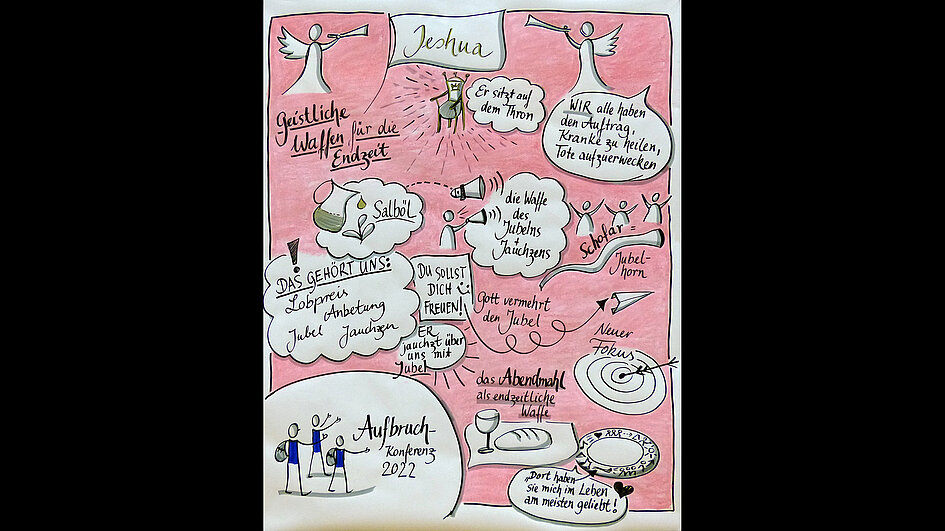 Jeshua
Er sitzt auf
dem Thron
WIR alle haben
den Auftrag,
Kranke zu heilen,
Tote aufzuerwecken
Geistliche
Waffen für die
Endzeit
Salböl
die Waffe
des
Jubelns
+
Jauchzens
Schofar =
Jubel-
horn
DAS GEHÖRT UNS:
Lobpreis
Anbetung
Jubel Jauchzen
DU SOLLST
DICH
FREUEN!
Gott vermehrt
den Jubel
ER
jauchzt über
uns mit
Jubel
Neuer
Fokus
das Abendmahl
als endzeitliche
Waffe
Aufbruch-
Konferenz
2022
„Dort haben
sie mich im Leben
am meisten geliebt!